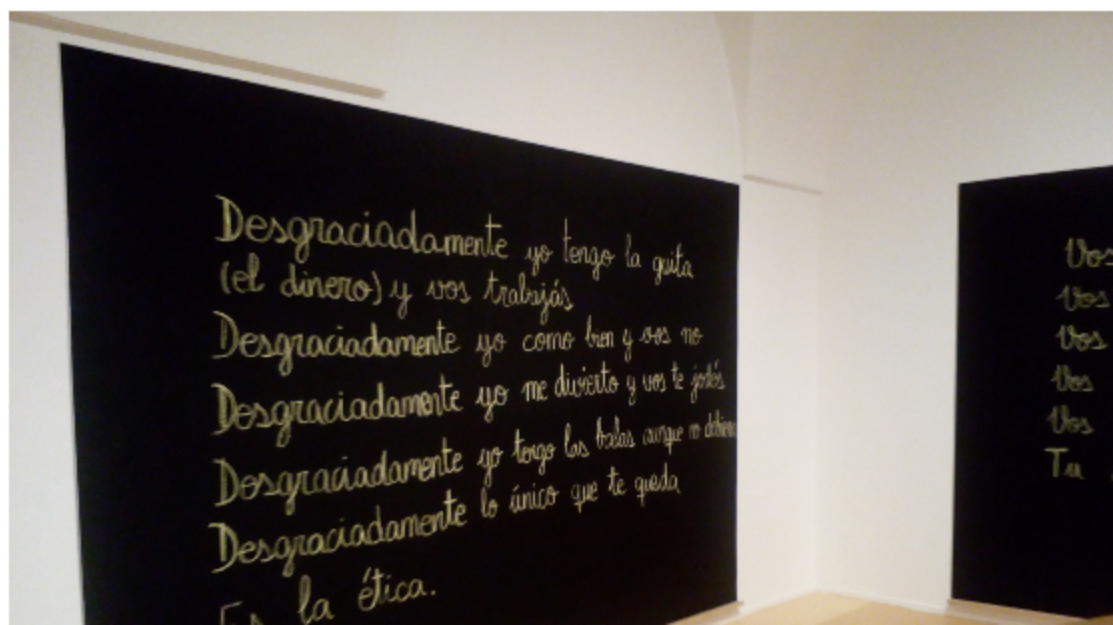 Desgraciadamente yo tengo la guita
(el dinero) y vos trabajás
Desgraciadamente yo como bien y vos no
Desgraciadamente yo me divierto y vos te jodés
Desgraciadamente yo tengo las balas aunque no debiera
Desgraciadamente lo único que te queda
Es la ética.
Vos
Vos
Vos
Vos
Vos
Tu